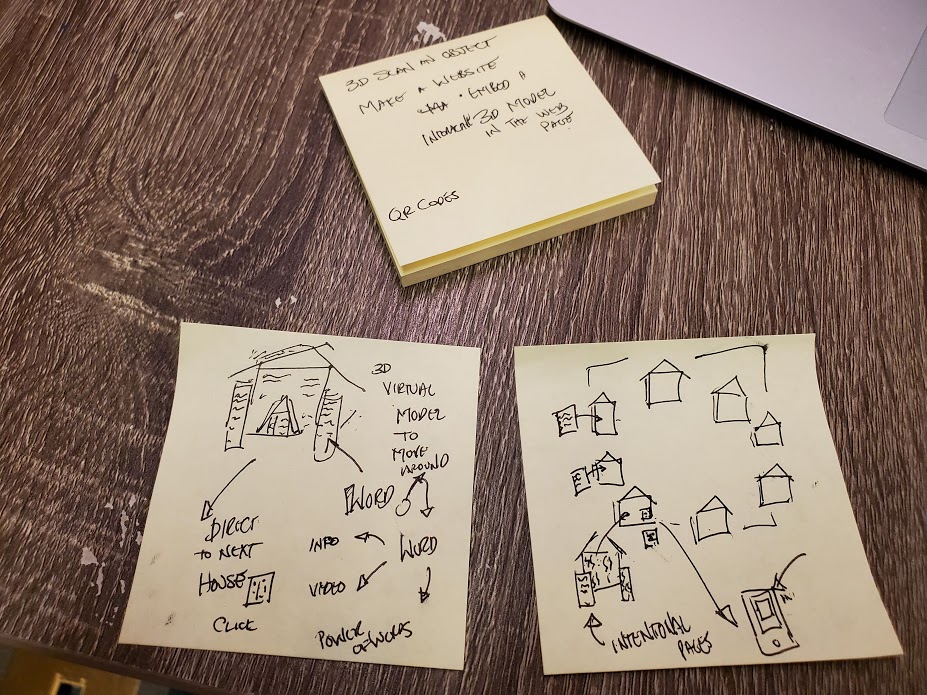 3D SCAN AN OBJECT
MAKE A WEBSITE
• EMBED A
3D MODEL
IN THE WEB
PAGE
QR CODES
3D
VIRTUAL
MODEL
TO
MOVE
AROUND
WORD
DIRECT
TO NEXT
HOUSE
CLICK
INFO
WORD
VIDEO
POWER
OF WORDS
INTENTIONAL
PAGES